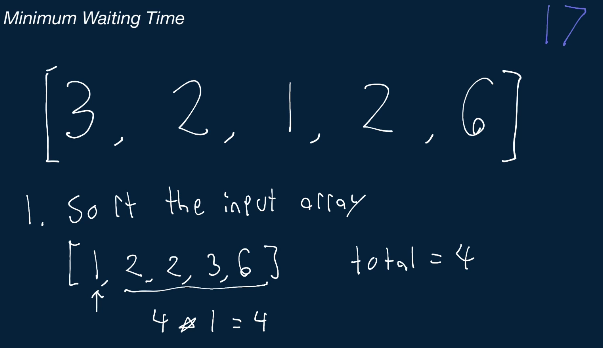 Minimum Waiting Time
17
[3, 2, 1, 2, 6]
1. Sort the input array
[1, 2, 2, 3, 6] total = 4
4 * 1 = 4